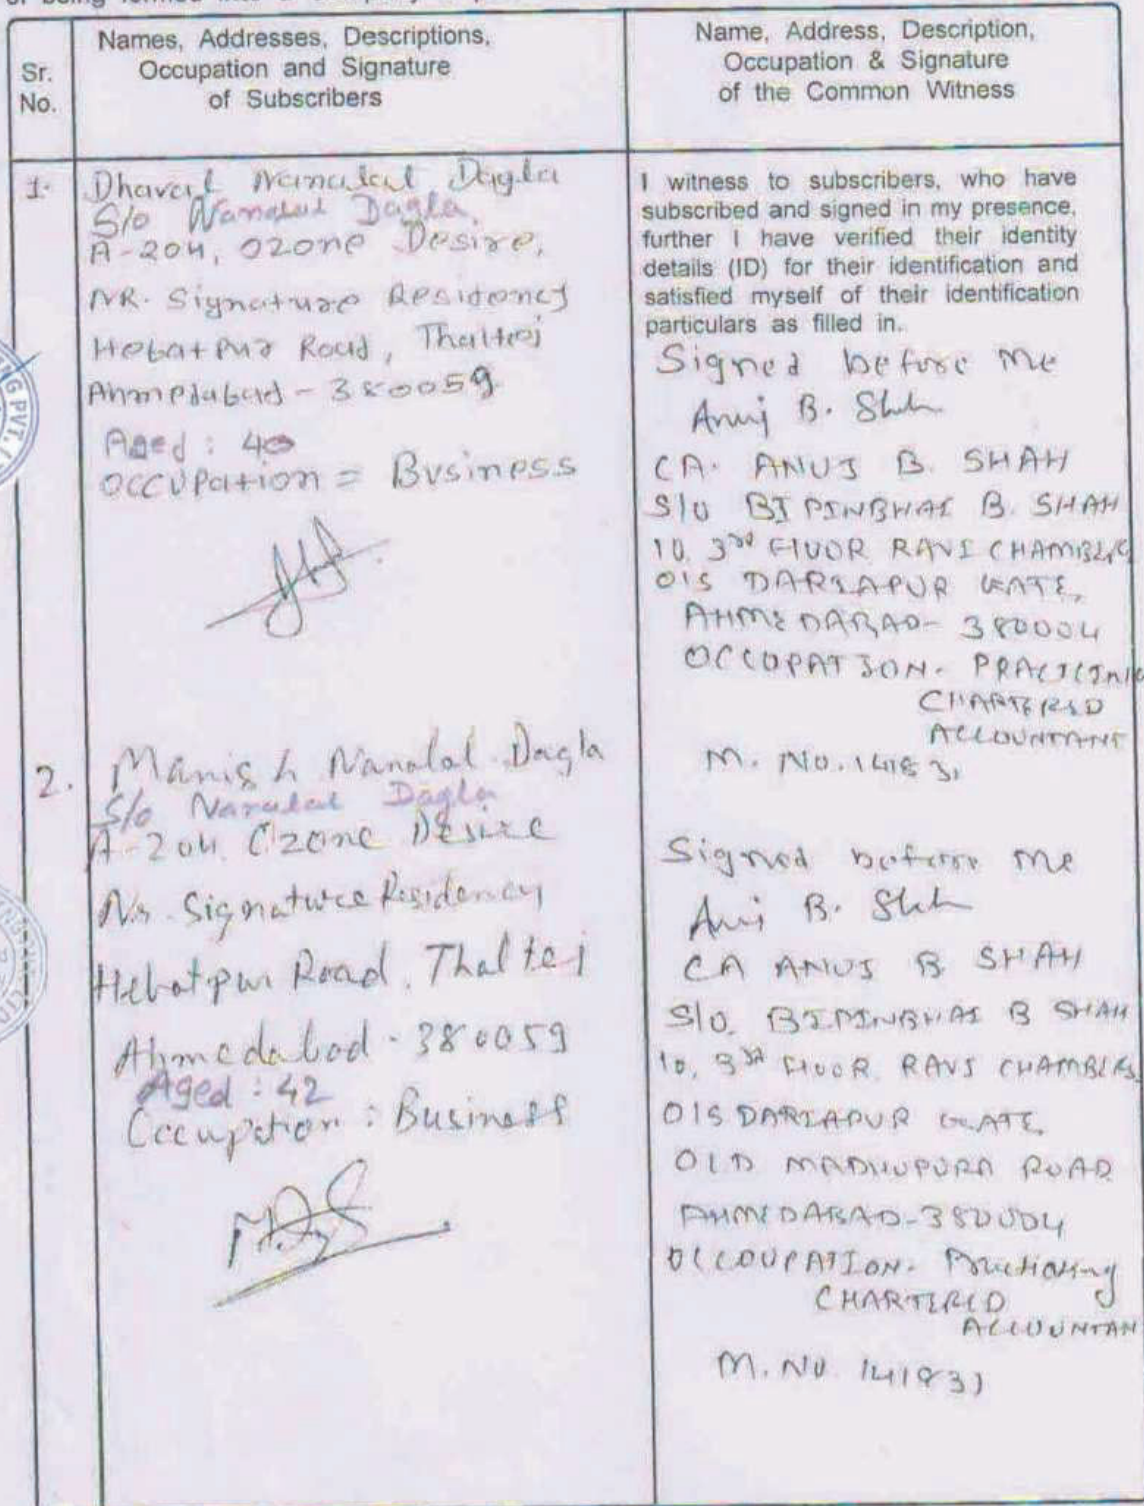 Sr.
No.
Names, Addresses, Descriptions,
Occupation and Signature
of Subscribers
Name, Address, Description,
Occupation & Signature
of the Common Witness
1.
Dharal Nanalal Dagla
S/o Nanalal Dagla,
A-204, Ozone Desire,
NR. Signature Residency
Hebatpur Road, Thaltej
Ahmedabad - 380059
Aged : 40
Occupation = Business
I witness to subscribers, who have
subscribed and signed in my presence,
further I have verified their identity
details (ID) for their identification and
satisfied myself of their identification
particulars as filled in.
Signed before me
Anuj B. Shah
CA. ANUJ B. SHAH
S/o BIPINBHAI B. SHAH
10, 3rd FLOOR RAVI CHAMBERS
O/S DARIAPUR GATE,
AHMEDABAD- 380004
OCCUPATION- PRACTICING
CHARTERED
ACCOUNTANT
M. NO. 141831
2.
Manish Nanalal Dagla
S/o Nanalal Dagla
A-204. Ozone Desire
Nr. Signature Residency
Hebatpur Road. Thaltej
Ahmedabad - 380059
Aged : 42
Occupation : Business
Signed before me
Anuj B. Shah
CA ANUJ B. SHAH
S/O. BIPINBHAI B SHAH
10, 3rd FLOOR. RAVI CHAMBERS
O/S DARIAPUR GATE,
OLD MADHUPURA ROAD
AHMEDABAD-380004
OCCOUPATION. Practicing
CHARTERED
ACCOUNTAN
M. NO. 141831